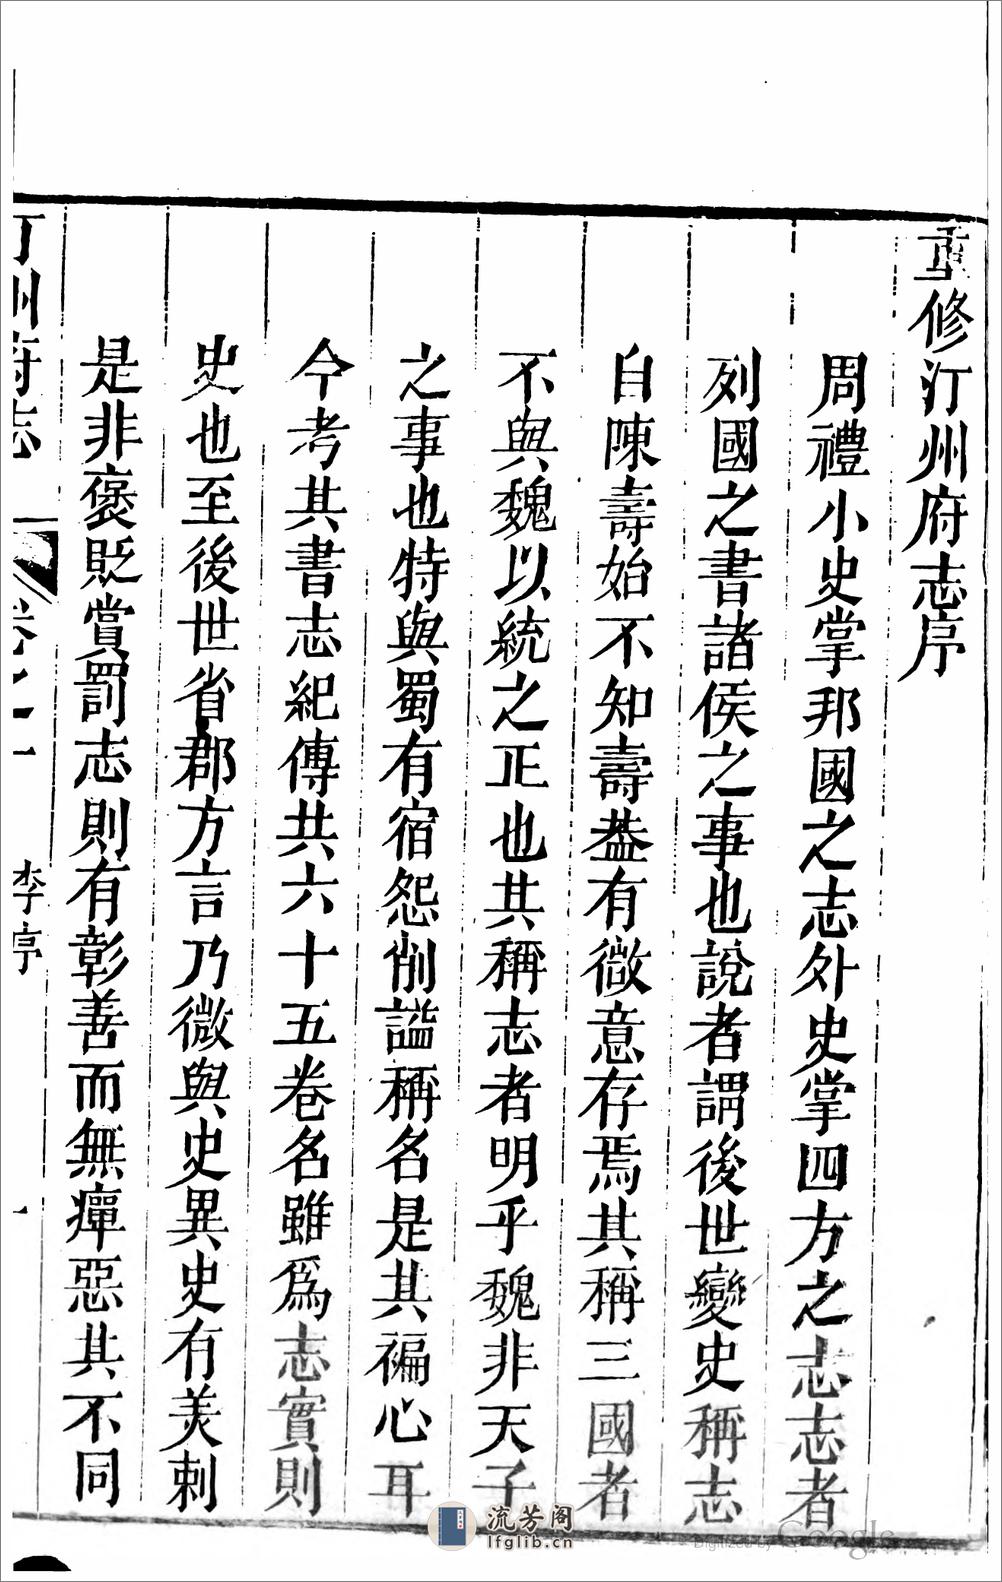 重修汀州府志序
周禮小史掌邦國之志外史掌四方之志志者
列國之書諸侯之事也說者謂後世變史稱志
自陳壽始不知壽葢有微意存焉其稱三國者
不與魏以統之正也其稱志者明乎魏非天子
之事也特與蜀有宿怨削諡稱名是其褊心耳
今考其書志紀傳共六十五卷名雖爲志實則
史也至後世省郡方言乃微與史異史有美刺
是非褒貶賞罰志則有彰善而無癉惡其不同
汀州府志 卷之一 李序 一
流芳阁
lfglib.cn
Digitized by Google